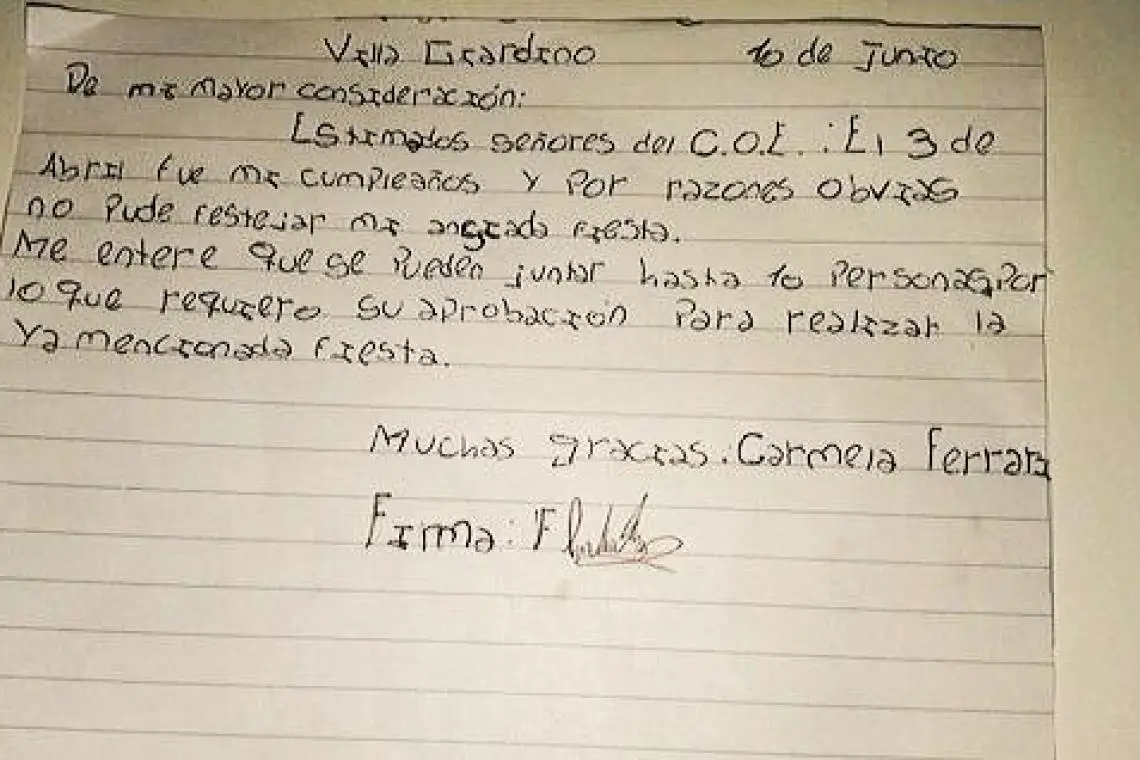 Villa Giardino 10 de Junio
De mi mayor consideración:
Estimados señores del C.O.E. : El 3 de
Abril fue mi cumpleaños y por razones obvias
no pude festejar mi ansiada fiesta.
Me entere que se pueden juntar hasta 10 personas, por
lo que requiero su aprobación para realizar la
ya mencionada fiesta.
Muchas gracias. Carmela Ferrara
Firma: